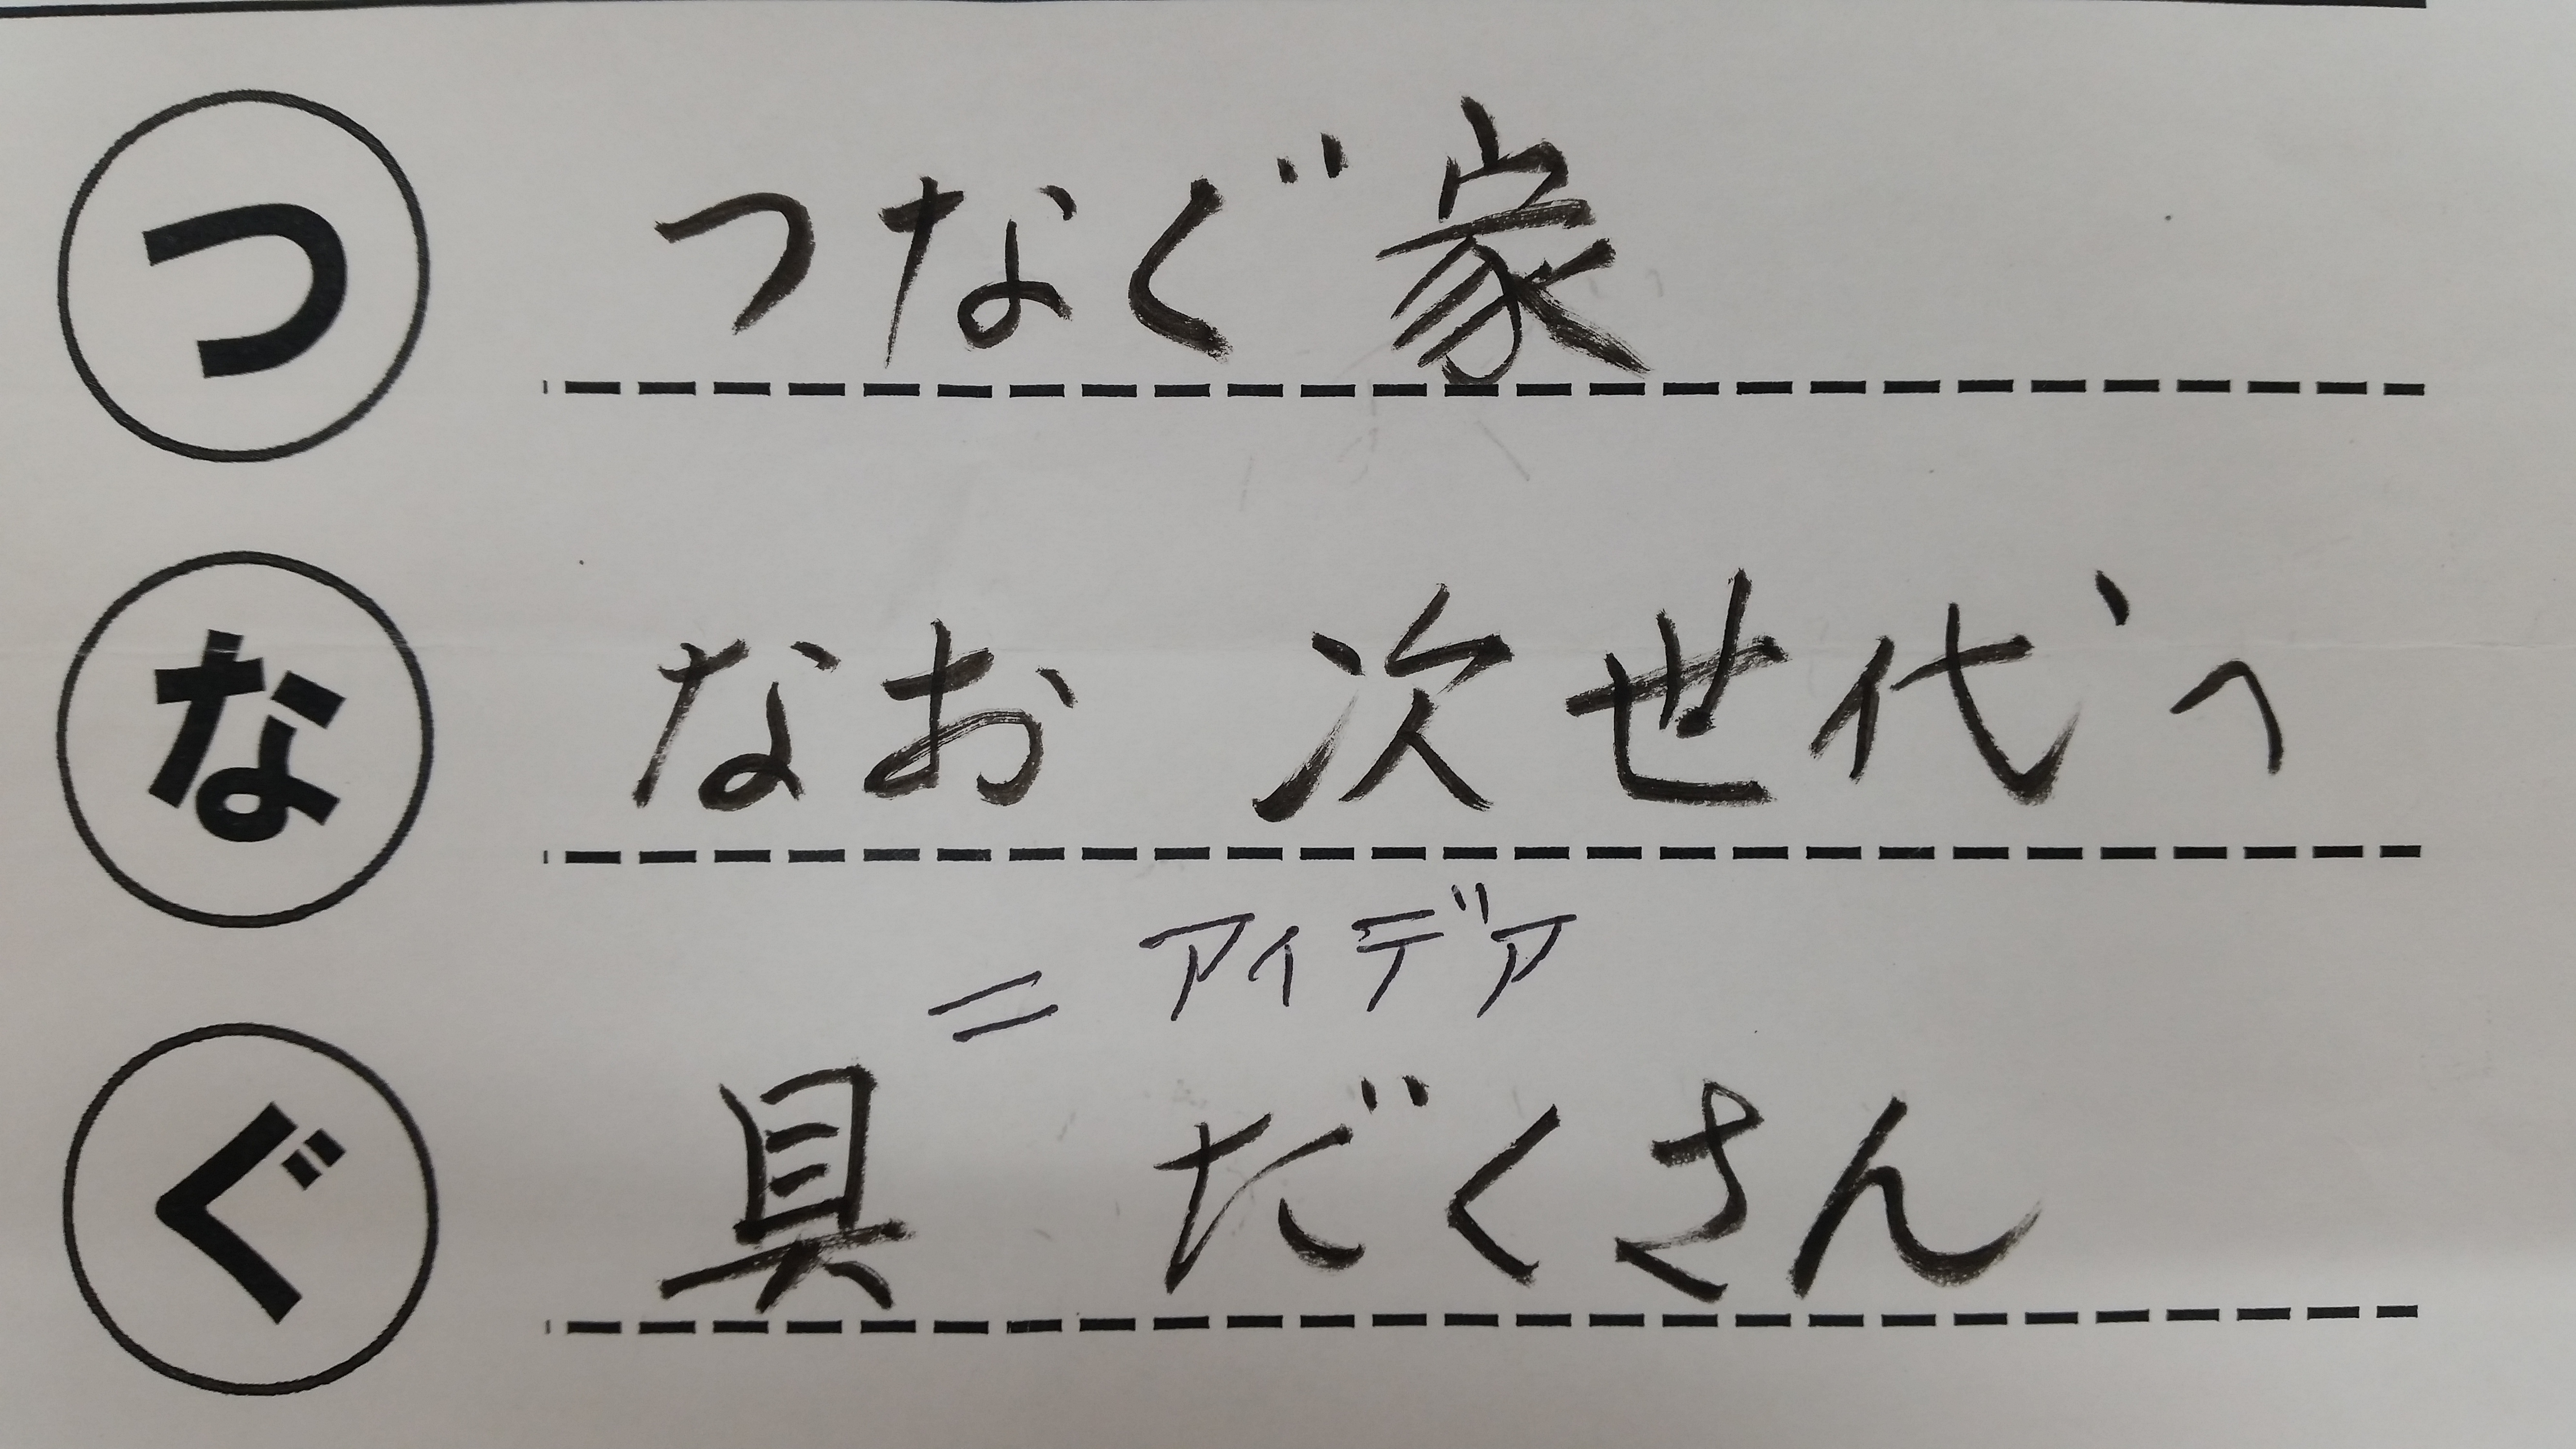 つ つなぐ家
な なお 次世代へ
＝アイデア
ぐ 具 だくさん